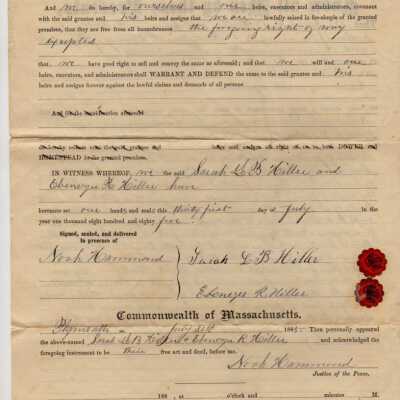 And we do hereby, for ourselves and our heirs, executors and administrators, covenant
with the said grantee and his heirs and assigns that we are lawfully seized in fee-simple of the granted
premises, that they are free from all incumbrances the forgoing right of way
excepted
that we have good right to sell and convey the same as aforesaid; and that we will and our
heirs, executors, and administrators shall WARRANT AND DEFEND the same to the said grantee and his
heirs and assigns forever against the lawful claims and demands of all persons
And for the consideration aforesaid
HOMESTEAD in the granted premises.
IN WITNESS WHEREOF, we the said Sarah L B Hiller and
Ebenezer R Hiller have
hereunto set our hands and seals this thirty first day of July in the
year one thousand eight hundred and eighty five
Signed, sealed, and delivered
in presence of
Noah Hammond
Sarah L B Hiller
Ebenezer R Hiller
Commonwealth of Massachusetts.
Plymouth ss July 31st 1885. Then personally appeared
the above-named Sarah L B Hiller & Ebenezer R Hiller and acknowledged the
foregoing instrument to be their free act and deed, before me,
Noah Hammond
Justice of the Peace.
188 , at o'clock and minutes M.